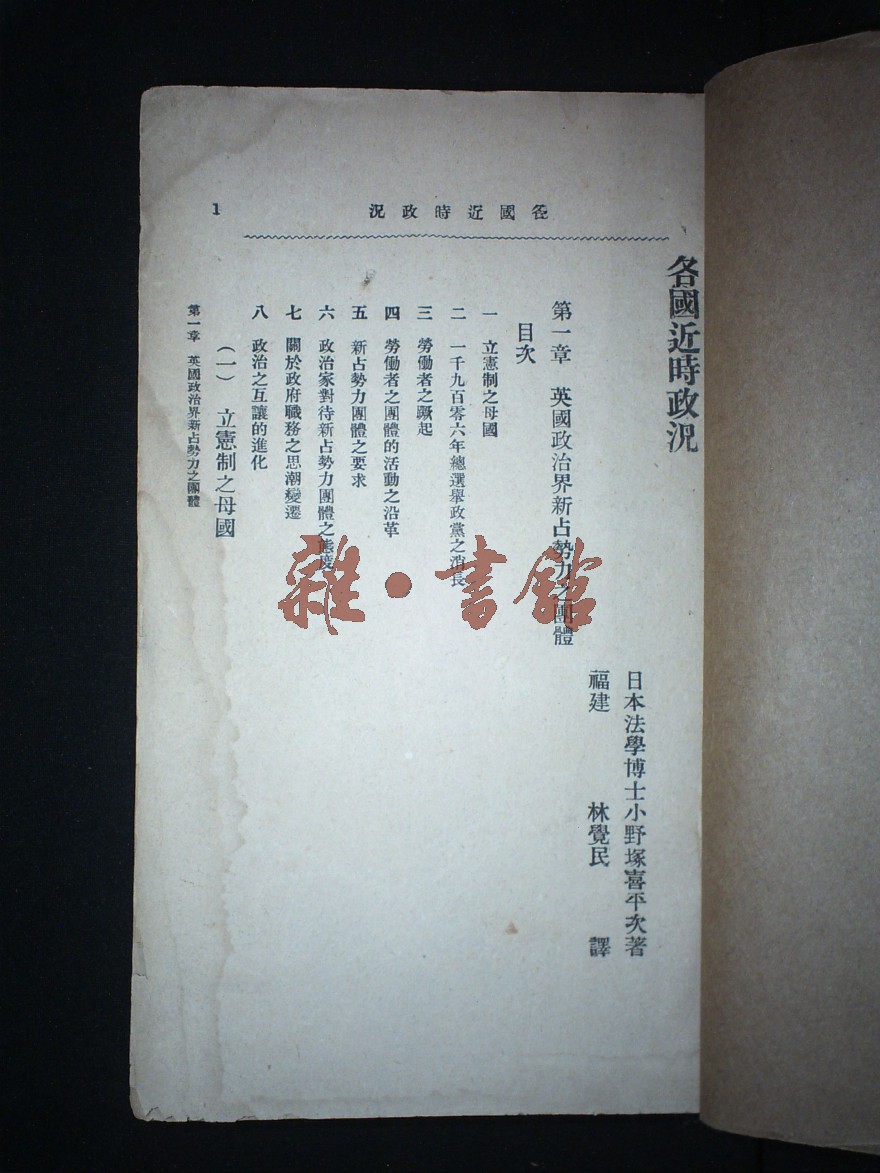 各國近時政況
1
各國近時政況
日本法學博士小野塚喜平次著
福建　林覺民　譯
第一章　英國政治界新占勢力之團體
目次
一　立憲制之母國
二　一千九百零六年總選舉政黨之消長
三　勞働者之蹶起
四　勞働者之團體的活動之沿革
五　新占勢力團體之要求
六　政治家對待新占勢力團體之態度
七　關於政府職務之思潮變遷
八　政治之互讓的進化
（一）　立憲制之母國
第一章　英國政治界新占勢力之團體
雜·書館